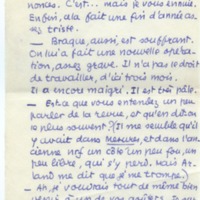 nonces. C'est... mais je vous ennuie.
Enfin, a la fait une fin d'année as-
sez triste.
— Braque, aussi, est souffrant.
On lui a fait une nouvelle opéra-
tion, assez grave. Il n'a pas le droit
de travailler, d'ici trois mois.
Il a encore maigri. Il est très pâle.
— Est-ce que vous entendez un peu
parler de la revue, et qu'en dit-on
le plus souvent? (Il me semble qu'il
y avait dans Mesures, et dans l'an-
cienne nrf un côté un peu fou, un
peu libre, qui s'y perd. Mais Ar-
land me dit que je me trompe.)
— Ah, je voudrais tout de même bien